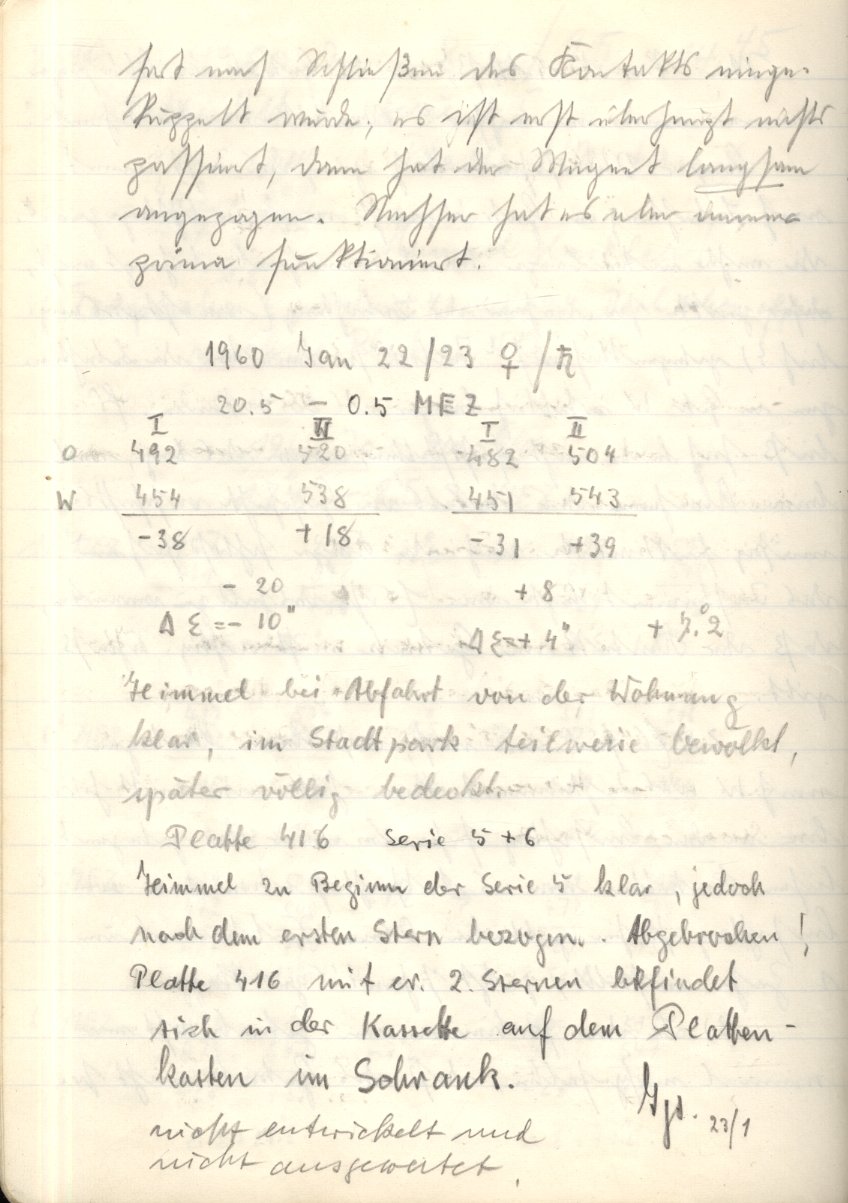 fort nach Schließen des Kontakts einge-
kuppelt wurde; es ist erst überhaupt nichts
passiert, dann hat der Magnet langsam
angezogen. Nachher hat es aber immer
prima funktioniert.
1960 Jan 22/23 ♀/♄
20.5 – 0.5 MEZ
I II I II
O 492 520 482 504
W 454 538 451 543
-38 +18 -31 +39
- 20 + 8
Δ ε = - 10" Δ ε = + 4" + 7.°2
Himmel bei Abfahrt von der Wohnung
klar, im Stadtpark teilweise bewölkt,
später völlig bedeckt.
Platte 416 Serie 5 + 6
Himmel zu Beginn der Serie 5 klar, jedoch
nach dem ersten Stern bezogen. Abgebrochen!
Platte 416 mit ev. 2. Sternen befindet
sich in der Kassette auf dem Platten-
kasten im Schrank.
23/1
nicht entwickelt und
nicht ausgewertet.